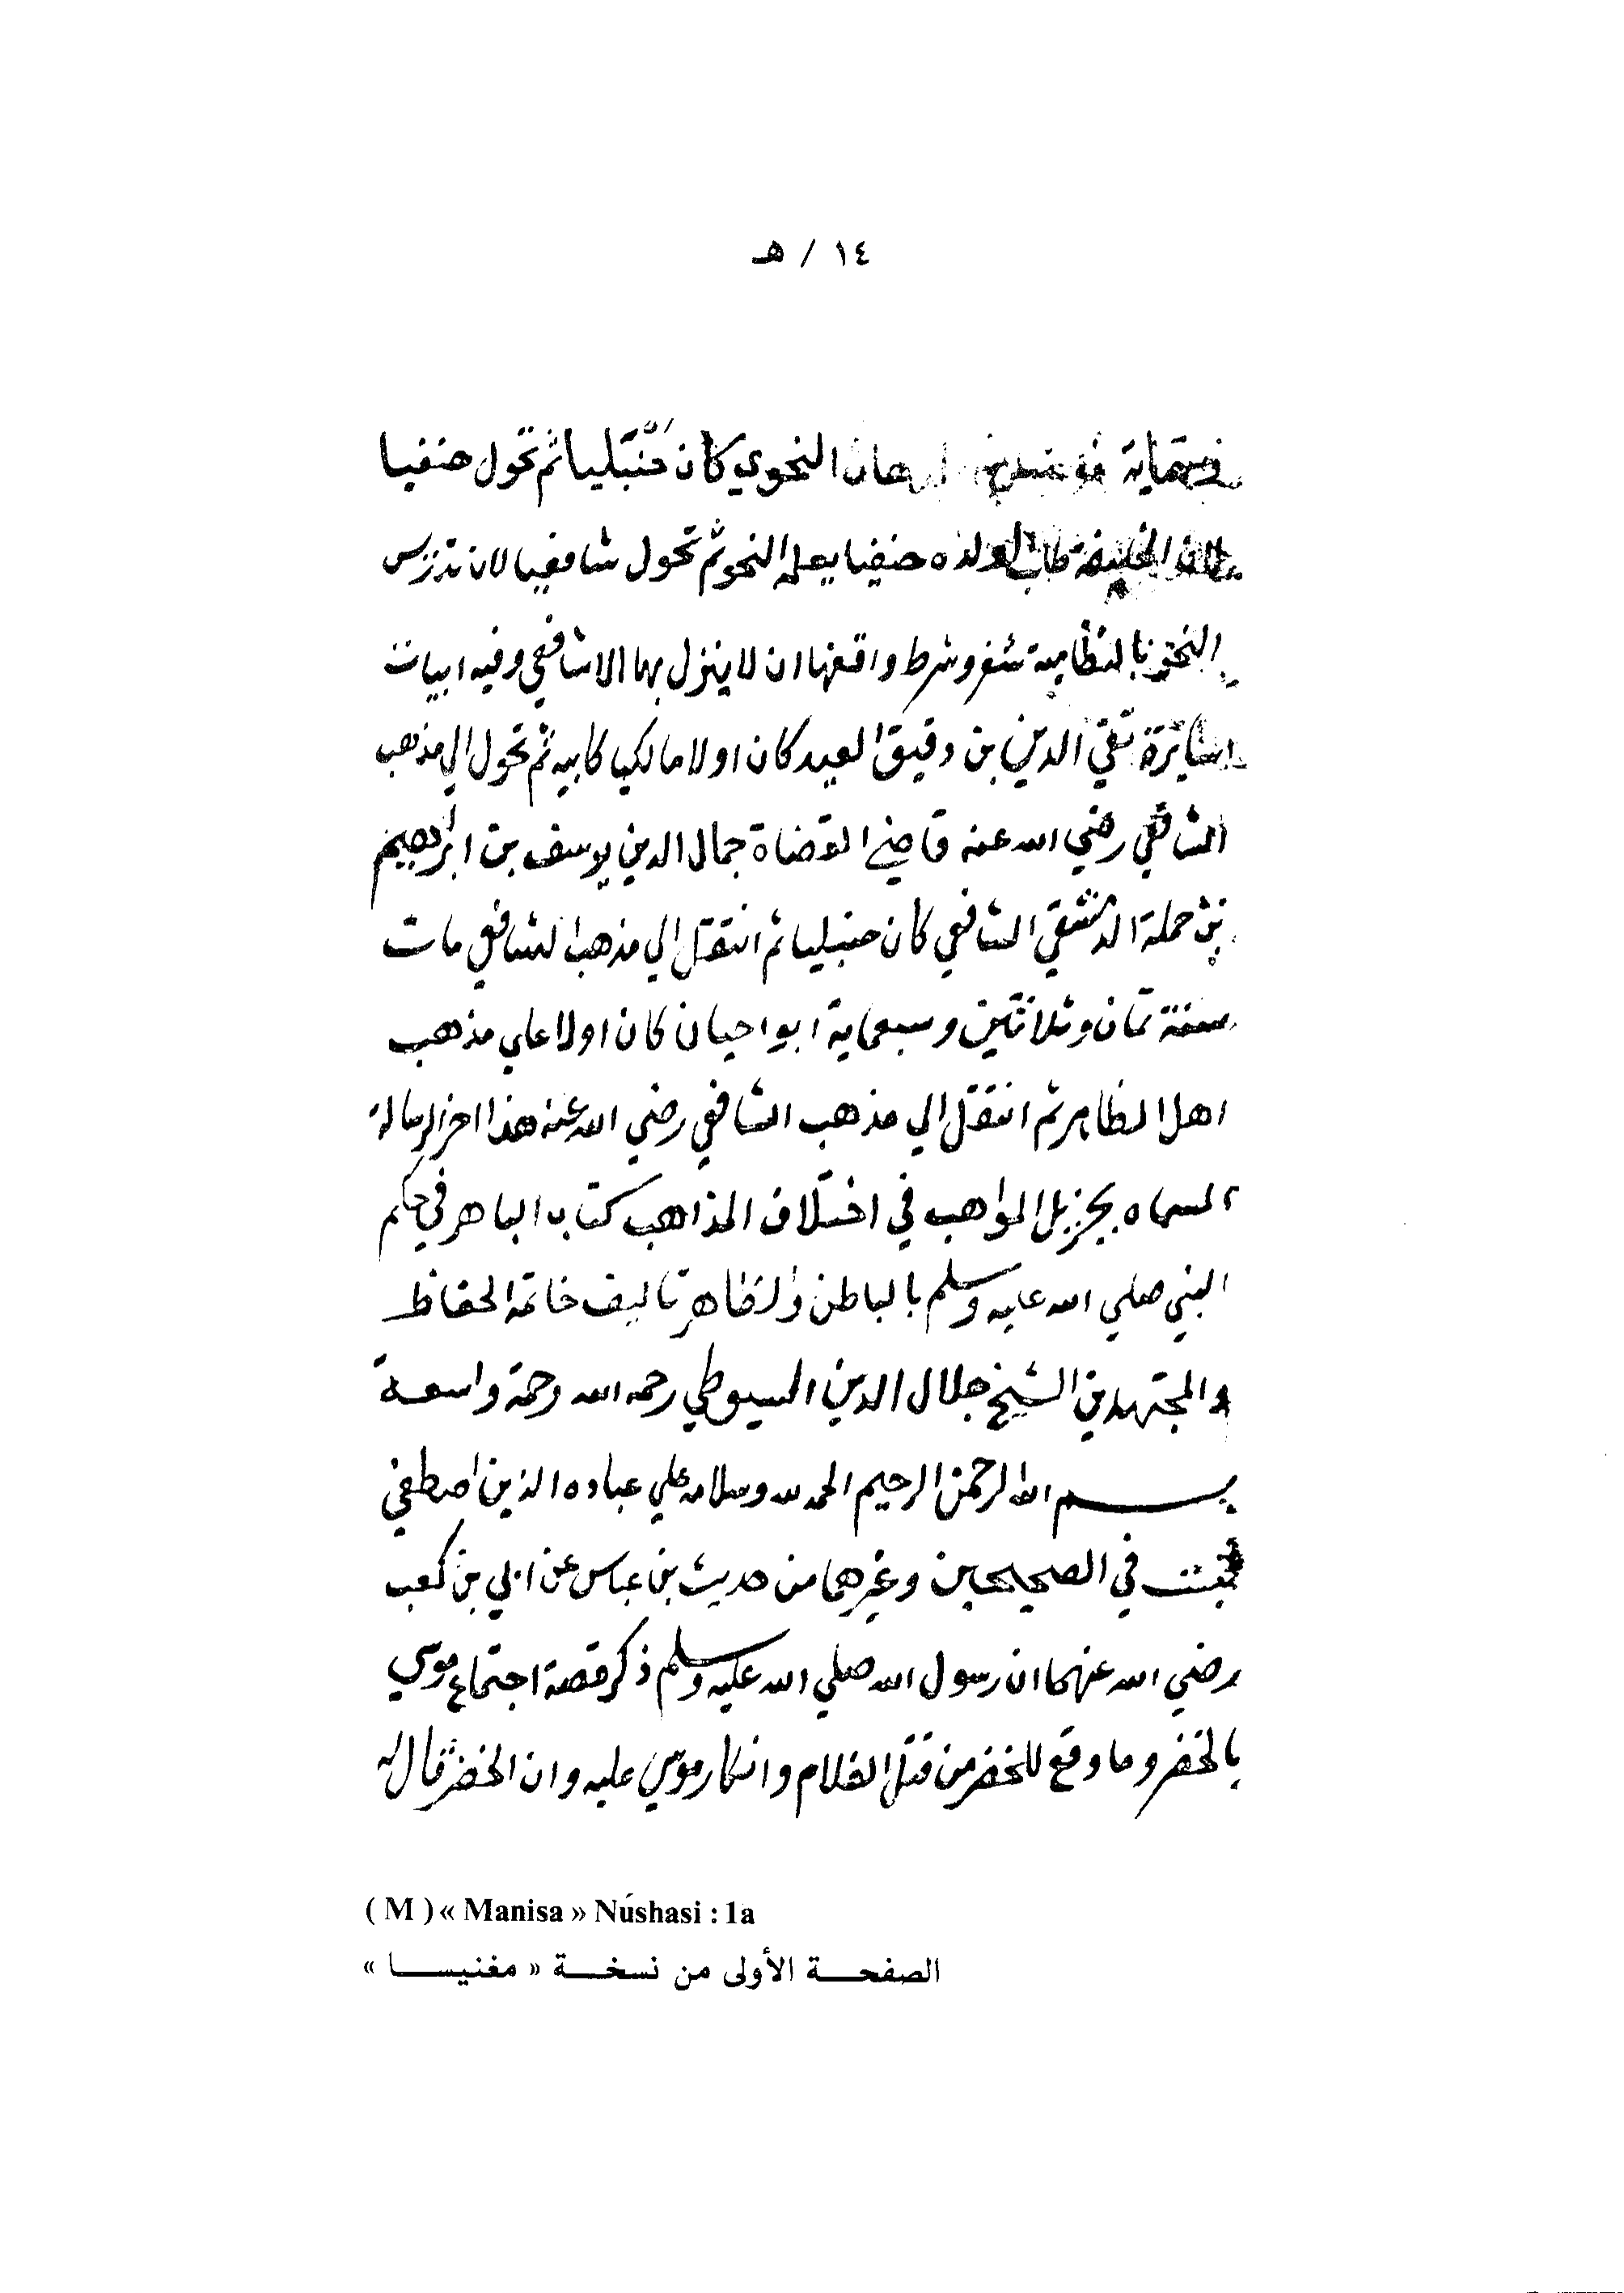 ١٤ / هـ
النحوي كان حنبليا ثم تحول حنفيا
الخليفة طلب لولده حنفيا يعلمه النحو ثم تحول شافعيا لان تدريس
النحو بالنظامية شغر وشرط واقفها ان لا ينزل بها الا شافعي وفيه ابيات
سائرة تقي الدين بن دقيق العيد كان اولا مالكيا كابيه ثم تحول الي مذهب
الشافعي رضي الله عنه قاضي القضاة جمال الدين يوسف بن ابراهيم
بن حملة الدمشقي الشافعي كان حنبليا ثم انتقل الي مذهب الشافعي مات
سنة ثمان وثلاثين وسبعماية ابوا حيان كان اولا علي مذهب
اهل الظاهر ثم انتقل الي مذهب الشافعي رضي الله عنه هذا اخر الرسالة
المسماه بجزيل المواهب في اختلاف المذاهب كتاب الباهر في حكم
النبي صلي الله عليه وسلم بالباطن والظاهر تاليف خاتمة الحفاظ
والمجتهدين الشيخ جلال الدين السيوطي رحمه الله رحمة واسعة
بسم الله الرحمن الرحيم الحمد لله وسلام علي عباده الذين اصطفي
ثبت في الصحيحين وغيرهما من حديث بن عباس عن ابي بن كعب
رضي الله عنهما ان رسول الله صلي الله عليه وسلم ذكر قصة اجتماع موسي
بالخضر وما وقع للخضر من قتل الغلام وانكار موسي عليه وان الخضر قال له
( M ) « Manisa » Núshasi : 1a
الصفحة الأولى من نسخة « مغنيسا »